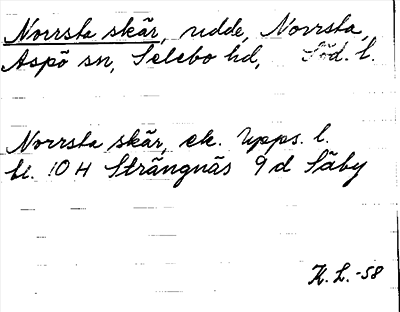 Norrsta skär, udde, Norrsta,
Aspö sn, Selebo hd, Söd. l.
Norrsta skär, ek. Upps. l.
bl. 10 H Strängnäs 9 d Säby
K. L. -58